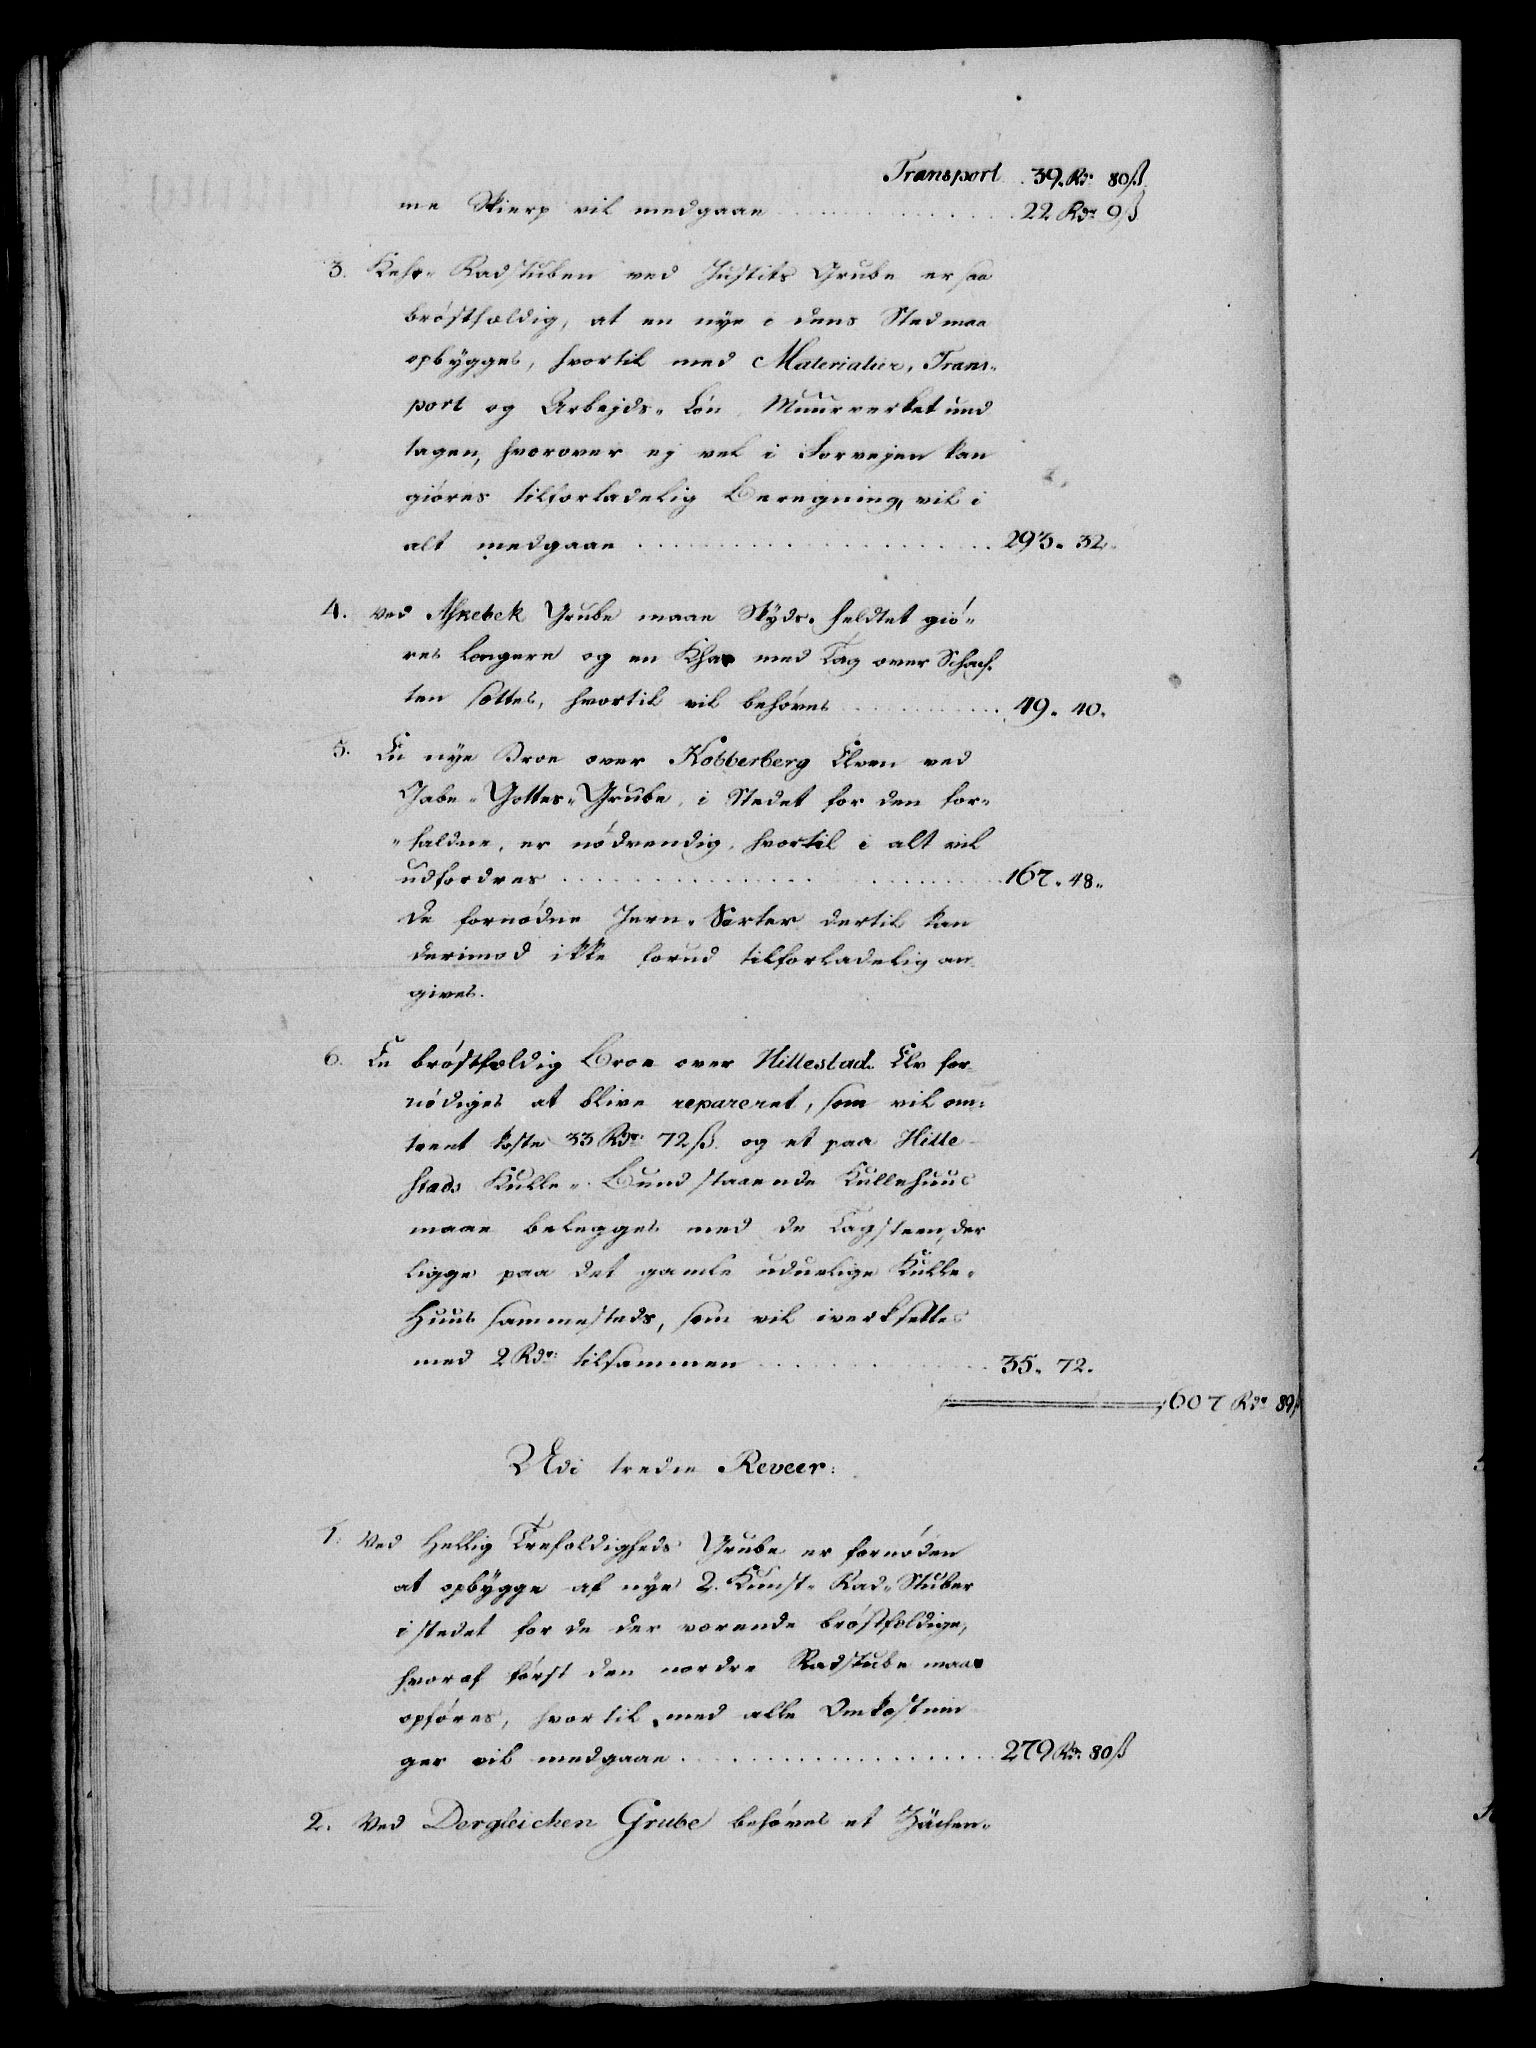 Transport 39. Rdr 80 ß
me Skierp vil medgaae . . . . . . 22 Rdr 9 ß
3. Kehr-Radstuben ved Justits Grube er saa
brøstfældig, at en nye i dens Sted maa
opbygges, hvortil med Materialier, Trans-
port og Arbejds-Løn, Muurverket und
tagen, hvorover ej vel i Forvejen kan
giøres tilforladelig Beregning, vil i
alt medgaae . . . . . . 293. 32.
4. Ved Askebek Grube maae Skyds-feldtet giø-
res længere og en Khae med Tag over Schach-
ten sættes, hvortil vil behøves . . . . . . 49. 40.
5. En nye Broe over Kobberberg Elven ved
Gabe-Gottes-Grube, i Stedet for den for-
-faldne, er nødvendig, hvortil i alt vil
udfordres . . . . . . 167. 48.
De fornødne Jern-Sorter dertil kan
derimod ikke forud tilforladelig an
gives.
6. En brøstfældig Broe over Hillestad Elv for-
nødiges at blive repareret, som vil om-
trent koste 33 Rdr 72 ß. og et paa Hille-
stads Kulle-Bund staaende Kullehuus
maae belegges med de Tagsteen, der
ligge paa det gamle uduelige Kulle-
Huus sammesteds, som vil iverksettes
med 2 Rdr: tilsammen . . . . . . 35. 72.
607 Rdr 89 ß
Udi tredie Reveer:
1. Ved Hellig Trefoldigheds Grube er fornøden
at opbygge af nye 2. Kunst-Rad-Stuber
i stedet for de der værende brøstfældige,
hvoraf først den nordre Radstube maae
opføres, hvortil med alle Omkostnin
ger vil medgaae . . . . . . 279 Rdr 80 ß
2. Ved Dergleichen Grube behøves et Zächen-